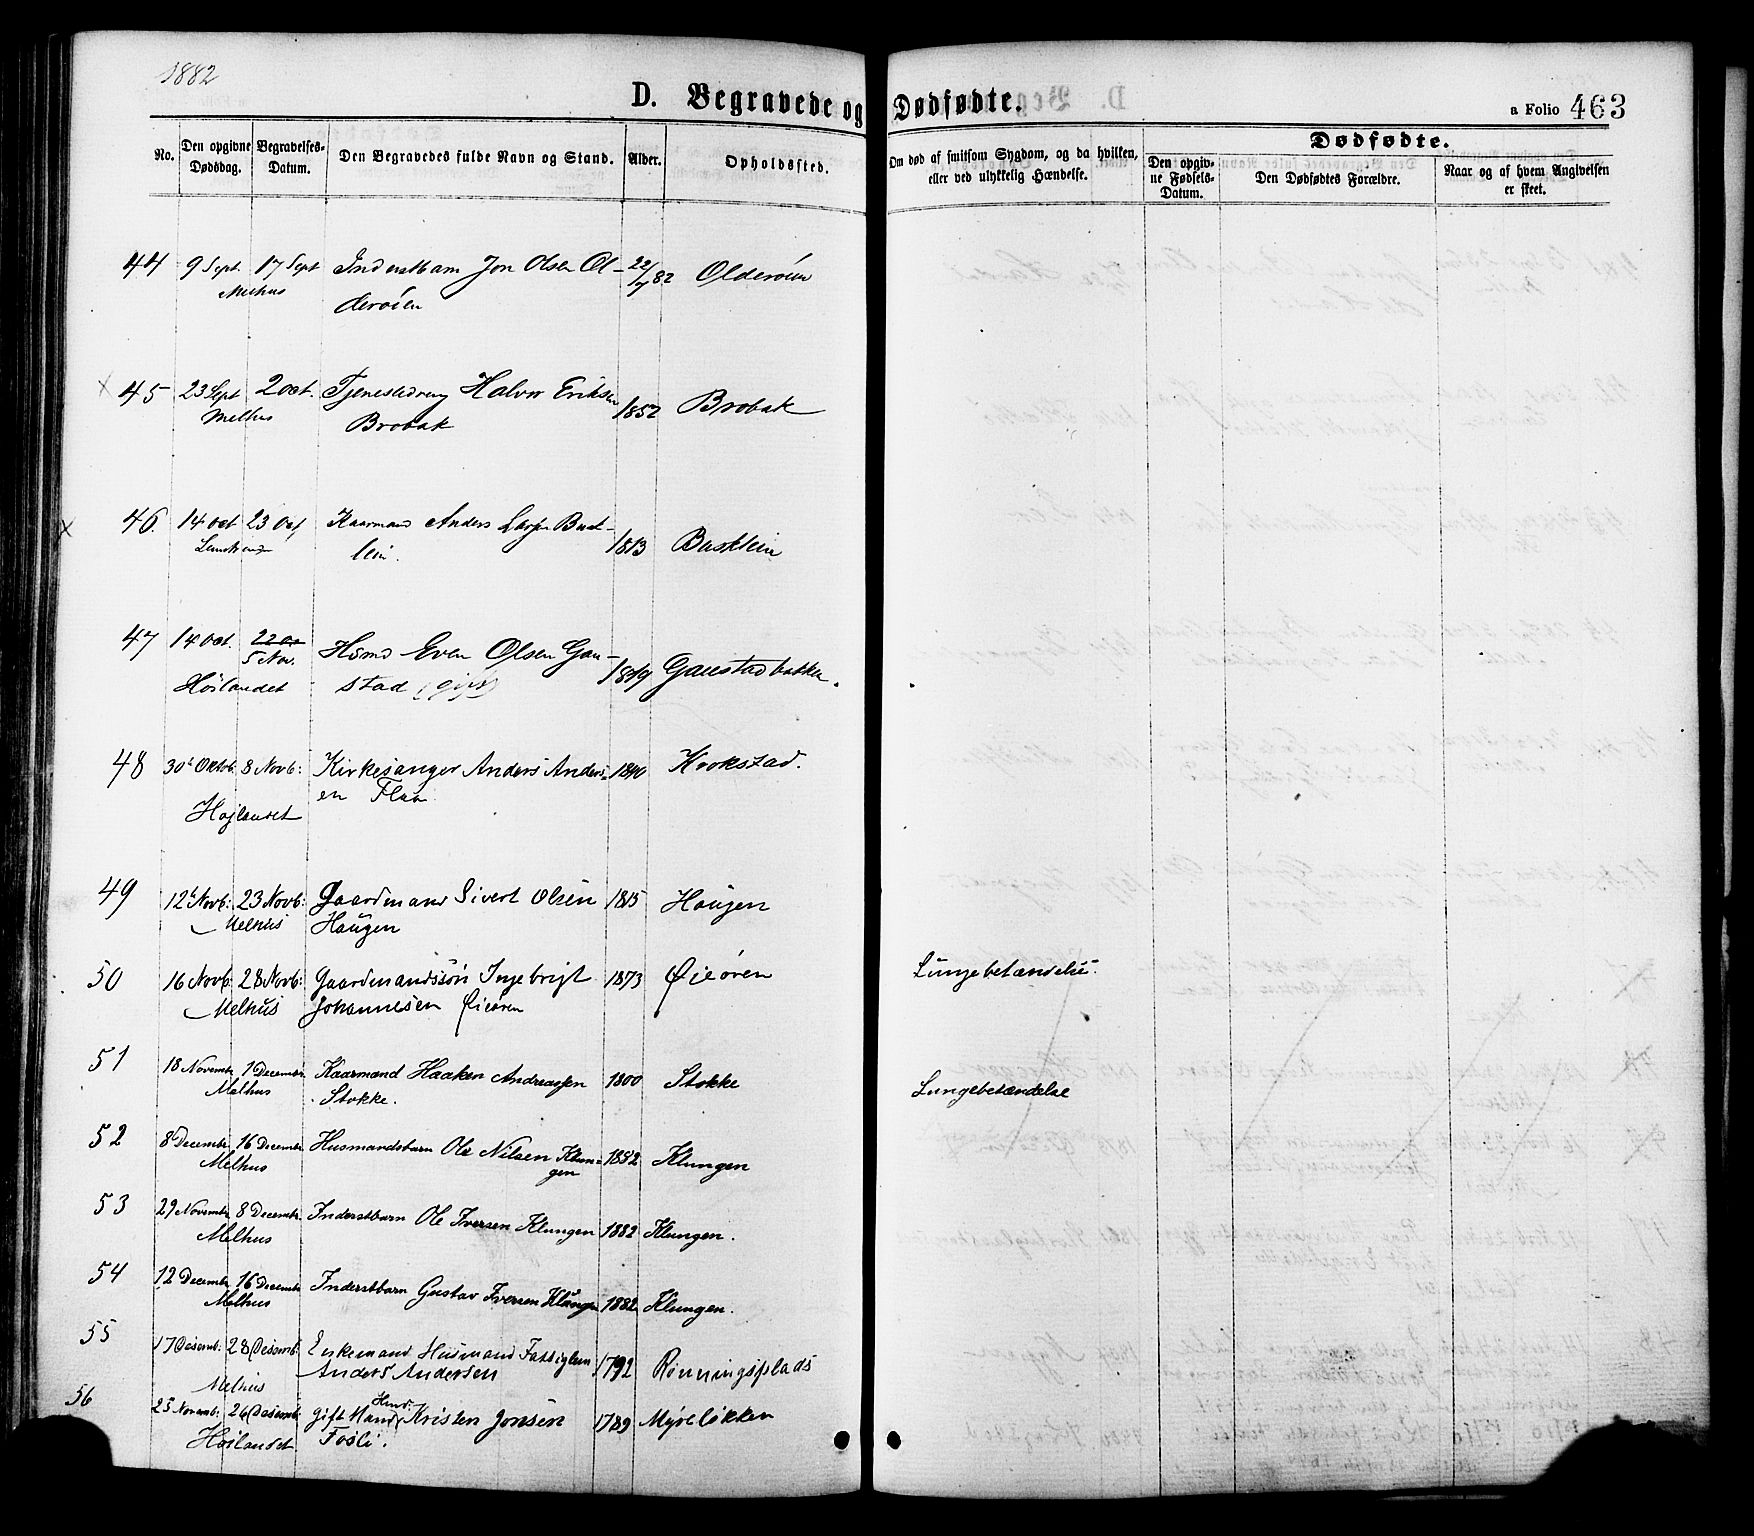 1882
D. Begravede og Dødfødte.
a Folio 463
No.
Den opgivne Dødsdag.
Begravelses-Datum.
Den Begravedes fulde Navn og Stand.
Alder.
Opholdssted.
Om død af smitsom Sygdom, og da hvilken, eller ved ulykkelig Hændelse.
Dødfødte.
Den opgivne Fødsels-Datum.
Den Dødfødtes Forældre.
Naar og af hvem Angivelsen er skeet.
44 9 Sept. 17 Sept Inderstbarn Jon Olsen Ol- 22/7 82 Olderøien
Melhus derøien
45 23 Sept 2 Oct. Tjenestedreng Halvor Eriksen 1852 Brobak
Melhus Brobak
46. 14 oct 23 Oct Kaarmand Anders Larsen Busk- 1813 Busklein
lein.
47 14 oct. 22 Oc
5 Nov. Hsmd Even Olsen Gau- 1849 Gaustadbakken.
Höilandet stad (gift)
48 30te Oktob. 8 Novb: Kirkesanger Anders Anders- 1840 Krokstad.
en Flaa
Højlandet
49 12te Novb: 23 Novb: Gaardmand Sivert Olsen 1815 Haugen
Melhus Haugen
50 16 Novb: 28 Novb: Gaardmandssøn Ingebrigt 1873 Øieøren Lungebetændelse.
Melhus Johannesen Øieøren
51 18 Novembr 1 Decembr Kaarmand Haaken Andreassen 1800 Stokke Lungebetændelse
Melhus Stokke.
52 8 Decembr. 16 Decembr. Husmandsbarn Ole Nilsen Klun- 1852 Klungen
Melhus gen
53 29 Novembr. 8 Decembr. Inderstbarn Ole Iversen Klungen 1882 Klungen.
Melhus
54 12 Decembr 16 Decembr Inderstbarn Gustav Iversen Klungen 1882 Klungen.
Melhus
55 17 Desemb: 28 Desemb: Enkemand Husmand Fattiglem 1792 Rønningsplads
Anders Andersen
Melhus
56 25 Novemb: 26 Desemb: gift Mand Husm: Kristen Jonsen 1789 Myreløkken
Höilandet Fosli.